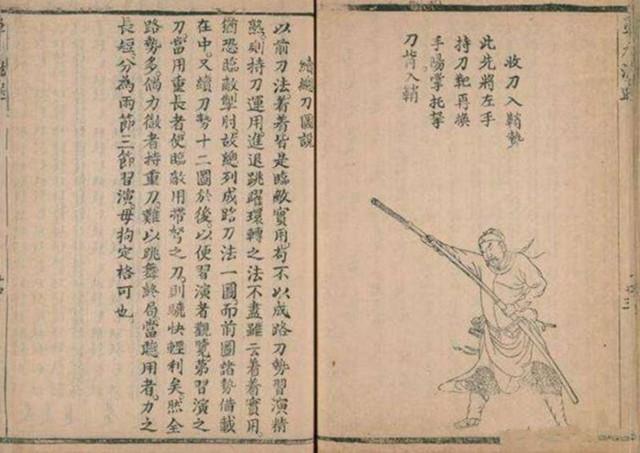 收刀入鞘勢
此先將左手
持刀靶再換
手陽掌托拏
刀背入鞘
續總刀圖說
以前刀法著著皆是臨敵實用苟不以成路刀勢習演精
熟則持刀運用進退跳躍環轉之法不盡雖云着着實用
猶恐臨敵掣肘故總列成路刀法一圖而前圖諸勢備載
在中又續刀勢十二圖於後以便習演者觀覽第習演之
刀當用重長者便臨敵用帶之刀則驍快輕利矣然全
路勢多偶力微者持重刀難以跳舞終局當聽用者力之
長短分為兩節三節習演毋拘定格可也